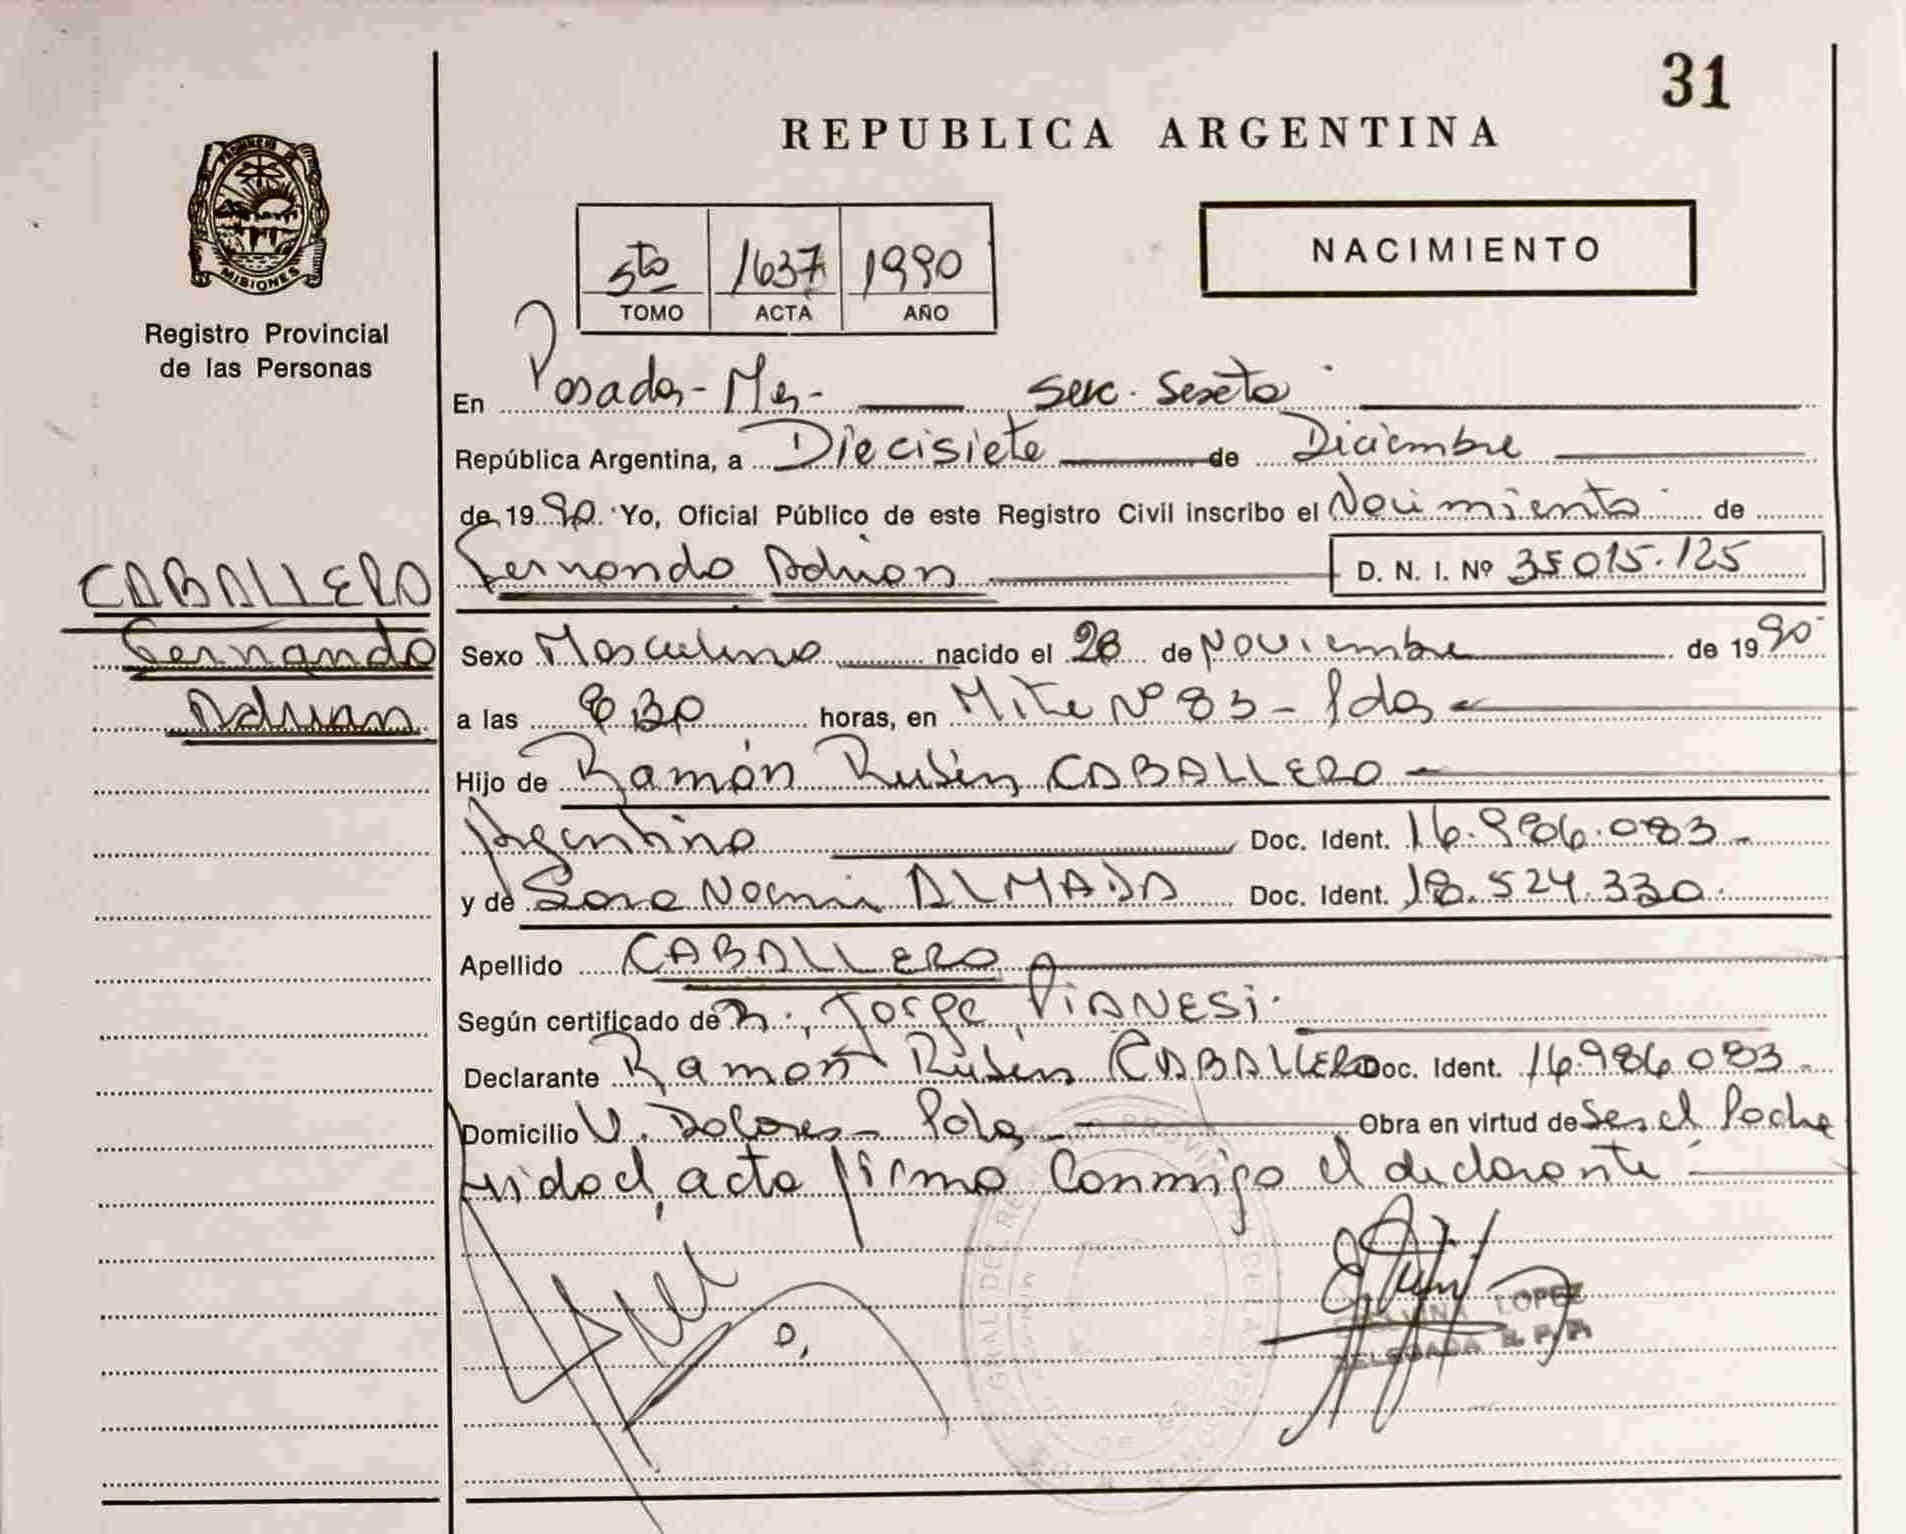 31
REPUBLICA ARGENTINA
PROVINCIA DE
MISIONES
Registro Provincial
de las Personas
5to 1637 1990
TOMO ACTA AÑO
NACIMIENTO
En Posadas - Mns - Secc. Sexta
República Argentina, a Diecisiete de Diciembre
de 1990. Yo, Oficial Público de este Registro Civil inscribo el Nacimiento de
Fernando Adrian D. N. I. Nº 35015.125
CABALLERO
Fernando
Adrian
Sexo Masculino nacido el 28 de Noviembre de 1990
a las 8 30 horas, en Mitre Nº 83 - Pdas
Hijo de Ramón Rubén CABALLERO
Argentino Doc. Ident. 16.986.083 -
y de Sara Noemi ALMADA Doc. Ident. 18.524.330.
Apellido CABALLERO
Según certificado de Jorge PIANESI.
Declarante Ramón Rubén CABALLERO Doc. Ident. 16.986.083 -
Domicilio V. Dolores - Pdas - Obra en virtud de
acta firma conmigo el declarante -
LOPEZ
DELEGADA R. P. P.